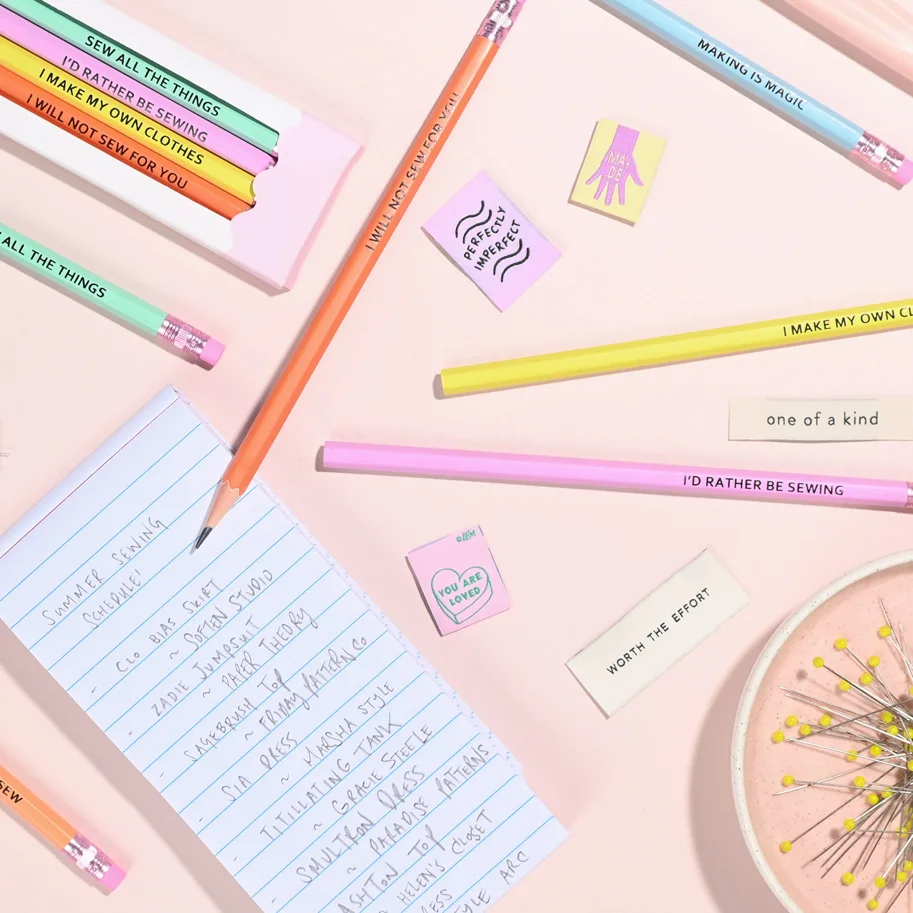 SEW ALL THE THINGS
I'D RATHER BE SEWING
I MAKE MY OWN CLOTHES
I WILL NOT SEW FOR YOU
I WILL NOT SEW FOR YOU
MAKING IS MAGIC
MA
DE
PERFECTLY
IMPERFECT
ALL THE THINGS
I MAKE MY OWN CL
one of a kind
I'D RATHER BE SEWING
YOU ARE
LOVED
WORTH THE EFFORT
SEW
SUMMER SEWING
SCHEDULE!
- CLO BIAS SKIRT
~ SOFTEN STUDIO
- ZADIE JUMPSUIT
~ PAPER THEORY
- SAGEBRUSH TOP
~ FRIDAY PATTERN CO
- SIA DRESS
~ MARSHA STYLE
- TITILLATING TANK
~ GRACIE STEELE
- SMULTRON DRESS
~ PARADISE PATTERNS
ASHTON TOP
HELEN'S CLOSET
ESS
YLE ARC